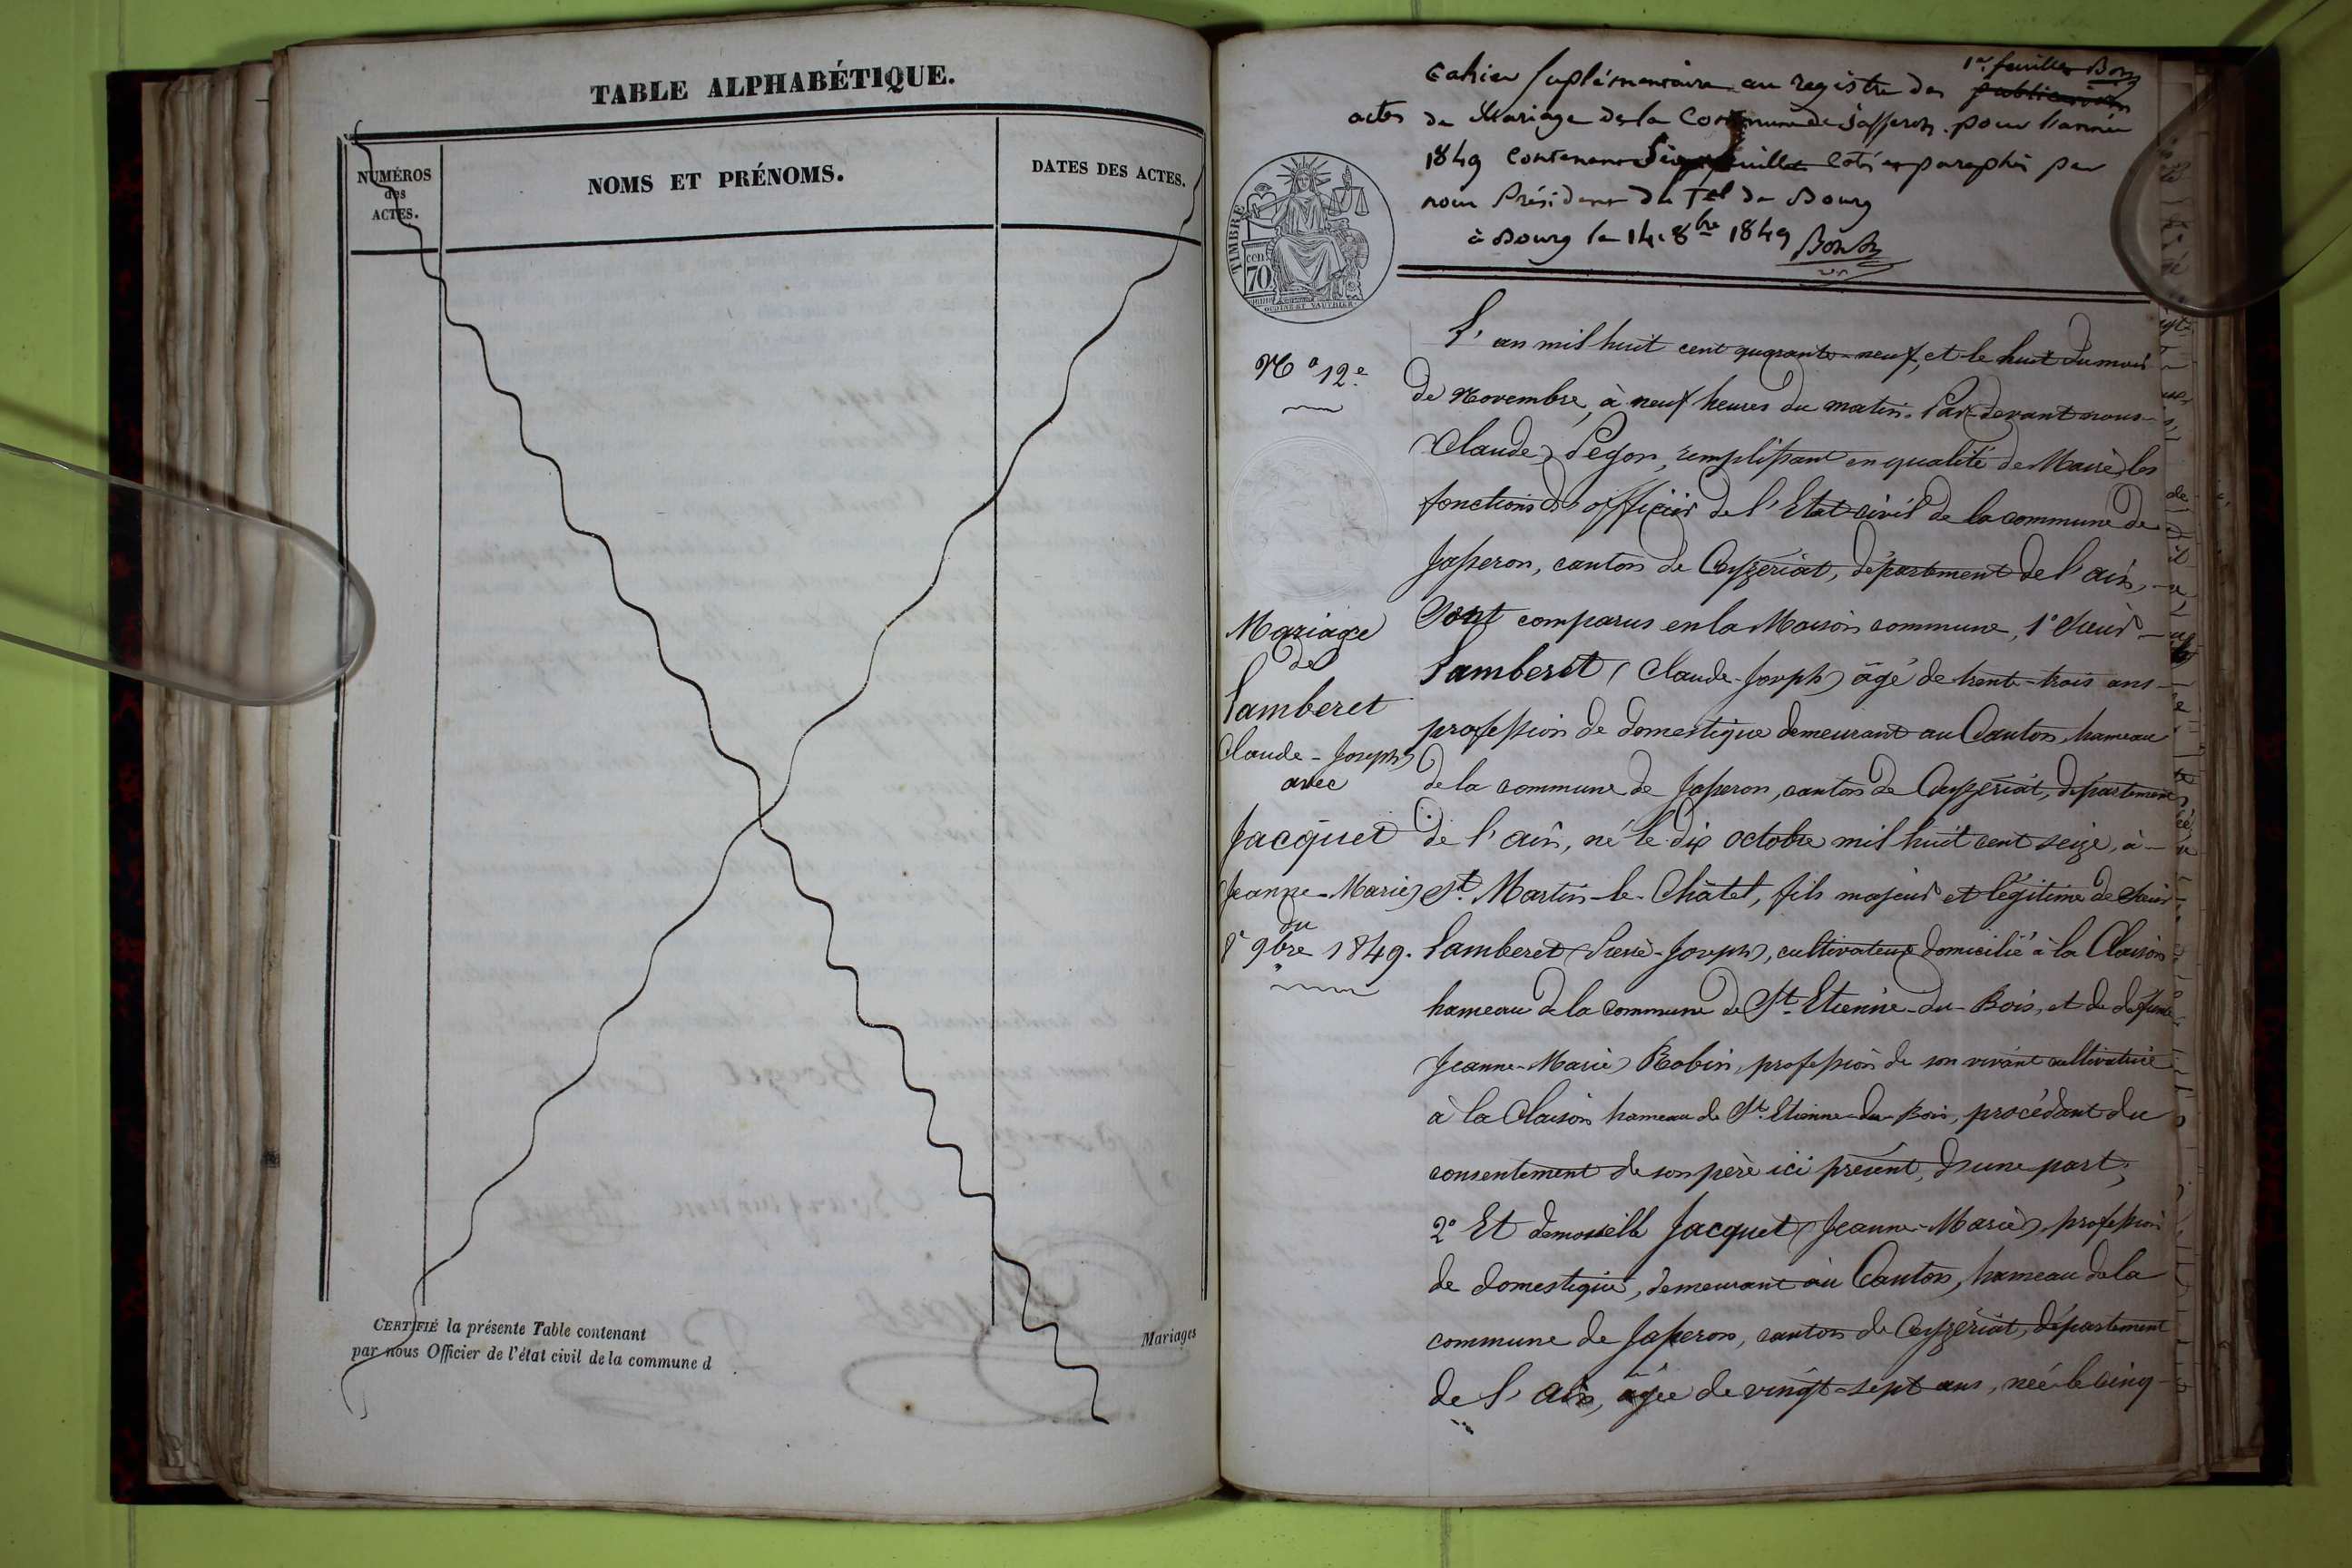 TABLE ALPHABÉTIQUE.
NUMÉROS
des
ACTES.
NOMS ET PRÉNOMS.
DATES DES ACTES.
CERTIFIÉ la présente Table contenant
Mariages
par nous Officier de l'état civil de la commune d
1re feuille Bon
Cahier suplémentaire au registre des publications
actes de Mariage de la Commune de Jasseron pour l'année
1849 contenant feuilles coté et paraphé par
nous Président du Tal de Bourg
à Bourg le 14 8bre 1849
TIMBRE
70
cen
N° 12e
Mariage
de
Lamberet
Claude-Joseph
avec
Jacquet
Jeanne-Marie
du
8 9bre 1849.
L'an mil huit cent quarante-neuf, et le huit du mois
de Novembre, à neuf heures du matin. Par devant nous
Claude Pegon, remplissant en qualité de Maire les
fonctions d'officier de l'Etat civil de la commune de
Jasseron, canton de Ceyzériat, département de l'ain,
Sont comparus en la Maison commune, 1° Sieur
Lamberet (Claude-Joseph) âgé de trente-trois ans
profession de domestique demeurant au Canton, hameau
de la commune de Jasseron, canton de Ceyzériat, département
de l'ain, né le dix octobre mil huit cent seize, à
St. Martin-le-Châtel, fils majeur et légitime de Sieur
Lamberet (Pierre-Joseph), cultivateur domicilié à la Claison
hameau de la commune de St. Etienne-du-Bois, et de défunte
Jeanne-Marie Robin, profession de son vivant cultivatrice
à la Claison hameau de St. Etienne-du-Bois, procédant du
consentement de son père ici présent, d'une part;
2° Et demoiselle Jacquet (Jeanne-Marie), profession
de domestique, demeurant au Canton, hameau de la
commune de Jasseron, canton de Ceyzériat, département
de l'Ain, âgée de vingt-sept ans, née le cinq